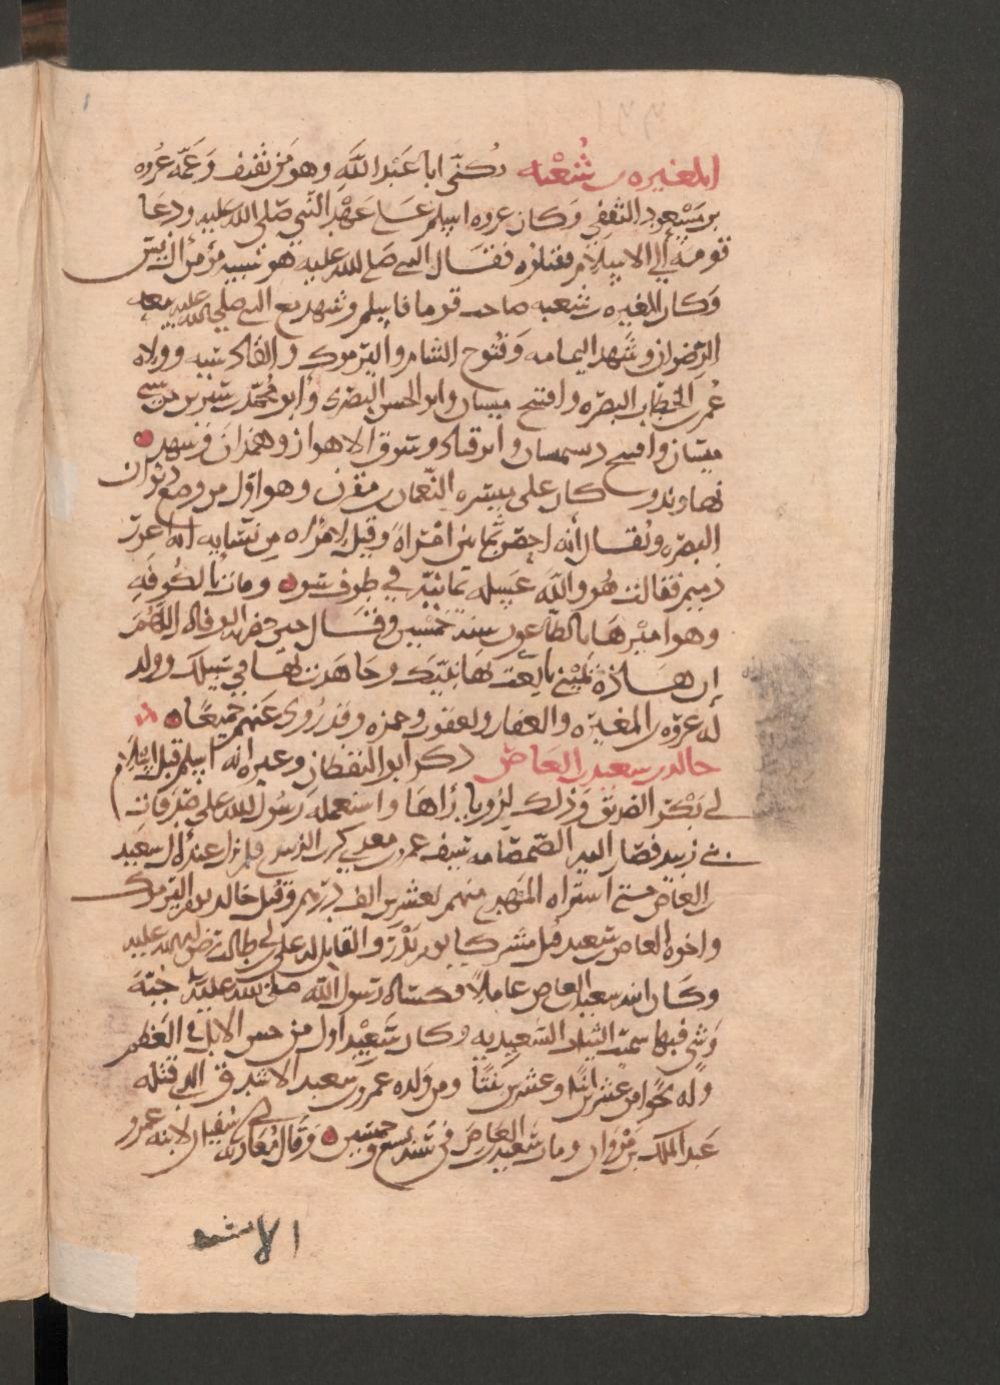 المغيره بن شعبه يكنى ابا عبد الله وهو من ثقيف وعمه عروه
بن مسعود الثقفي وكان عروه اسلم على عهد النبي صلى الله عليه ودعا
قومه الى الاسلام فقتلوه فقال النبي صلى الله عليه هو شبيه مؤمن ال يس
وكان المغيره بن شعبه صاحب قوما فاسلم وشهد مع النبي صلى الله عليه بيعه
الرضوان وشهد اليمامه وفتوح الشام واليرموك والقادسيه وولاه
عمر بن الخطاب البصره وافتتح ميسان وابو الحسن البصرى وابو محمد بن سيرين من سبي
ميسان وافتتح دستميسان وابرقباد وسوق الاهواز وهمذان وشهد
نهاوند وكان على ميسره النعمان بن مقرن وهو اول من وضع ديوان
البصره ويقال انه احصن ثمانين امراة وقيل لامراه من نسايه انه اعور
دميم فقالت هو والله عسيله يمانيه في ظرف سوء ومات بالكوفه
وهو اميرها بالطاعون سنه خمسين وقال حين دفن اللهم
إن هذه يميني بايعت بها نبيك وجاهدت بها في سبيلك وولد
له عروه بن المغيره والعقار ويعفور وحمزه وقد روى عنهم جميعا
خالد بن سعيد بن العاص ذكر ابو اليقظان وغيره انه اسلم قبل اسلام
ابي بكر الصديق وذلك لرويا راها واستعمله رسول الله على صدقات
بني زبيد فصار اليه الصمصامه سيف عمرو بن معدي كرب الزبيدي فلم يزل عند ال سعيد
بن العاص حتى اشتراه المهدي منهم بعشرين الف درهم وقتل خالد يوم اليرموك
واخوه العاص بن سعيد قتل مشركا يوم بدر والقاتل له علي بن ابي طالب رضى الله عليه
وكان ابنه سعيد بن العاص عاملا وكساه رسول الله صلى الله عليه جبة
وشي فبها سميت الثياب السعيديه وكان سعيد اول من خس الابل في العظم
وله نحوا من عشرين ابنا وعشرين بنتا ومن ولده عمرو بن سعيد الاشدق الذي قتله
عبد الملك بن مروان ومات سعيد بن العاص في سنه تسع وخمسين وقال معاويه بن ابي سفيان لابنه عمرو